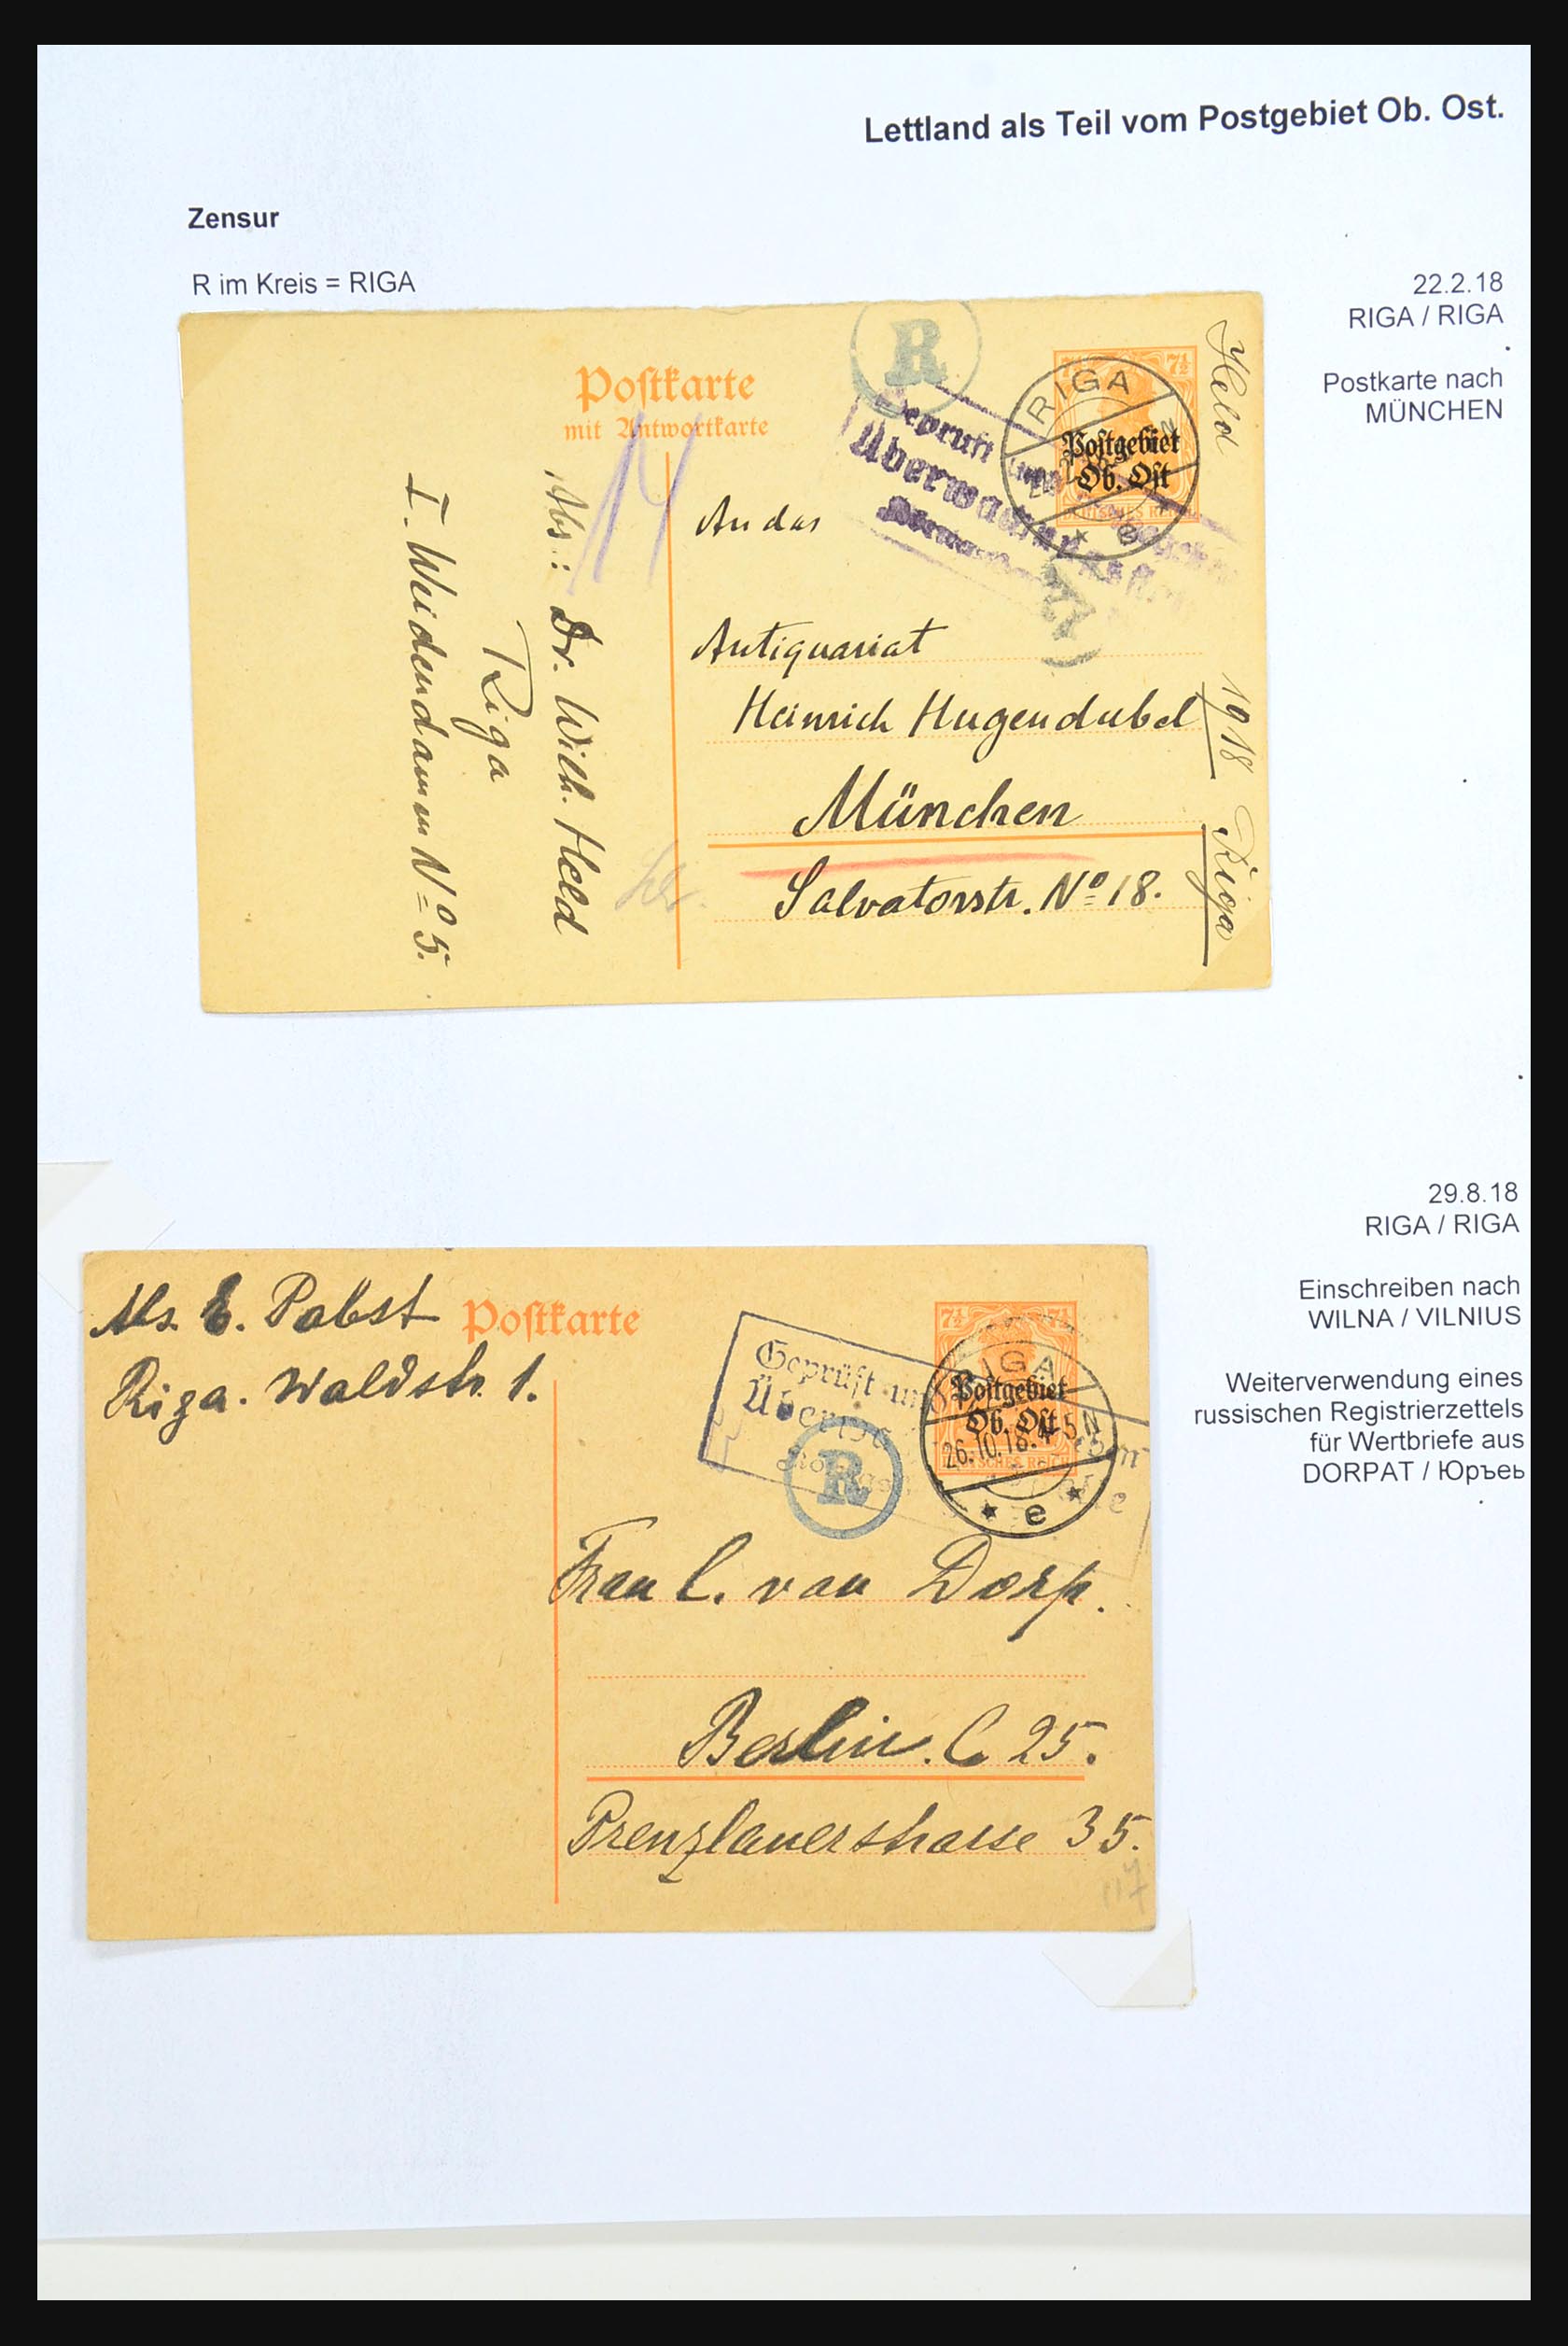 Lettland als Teil vom Postgebiet Ob. Ost.
Zensur
R im Kreis = RIGA
22.2.18
RIGA / RIGA
Postkarte nach
MÜNCHEN
Postkarte
mit Antwortkarte
R
7½ 7½
RIGA
Postgebiet
Ob. Ost
DEUTSCHES REICH
e
Geprüft und
Überwachungs
Held
1918 Riga
An das
Antiquariat
Heinrich Hugendubel
München
Salvatorstr. Nº 18.
Abs.: Dr. Wilh. Held
Riga
I. Weidendamm Nº 5.
29.8.18
RIGA / RIGA
Einschreiben nach
WILNA / VILNIUS
Weiterverwendung eines
russischen Registrierzettels
für Wertbriefe aus
DORPAT / Юръеь
Abs. E. Pabst
Riga. Waldstr. 1.
Postkarte
7½ 7½
RIGA
Postgebiet
Ob. Ost
26.10.18. 4-5 N
DEUTSCHES REICH
e
Geprüft und
R
Frau C. van Dorp.
Berlin. C 25.
Prenzlauerstrasse 35.
117